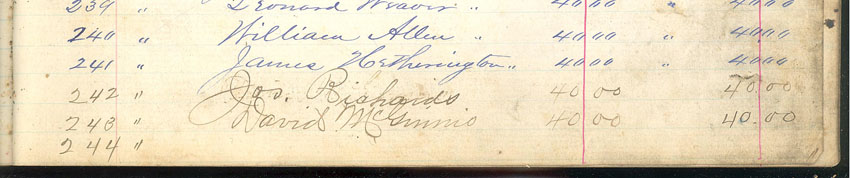 239 " Leonard Weaver " 40 00 " 40 00
240 " William Allen " 40 00 " 40.00
241 " James Hetherington " 40 00 " 40 00
242 " Jos. Richards 40 00 40.00
243 " David McGinnis 40 00 40.00
244 "